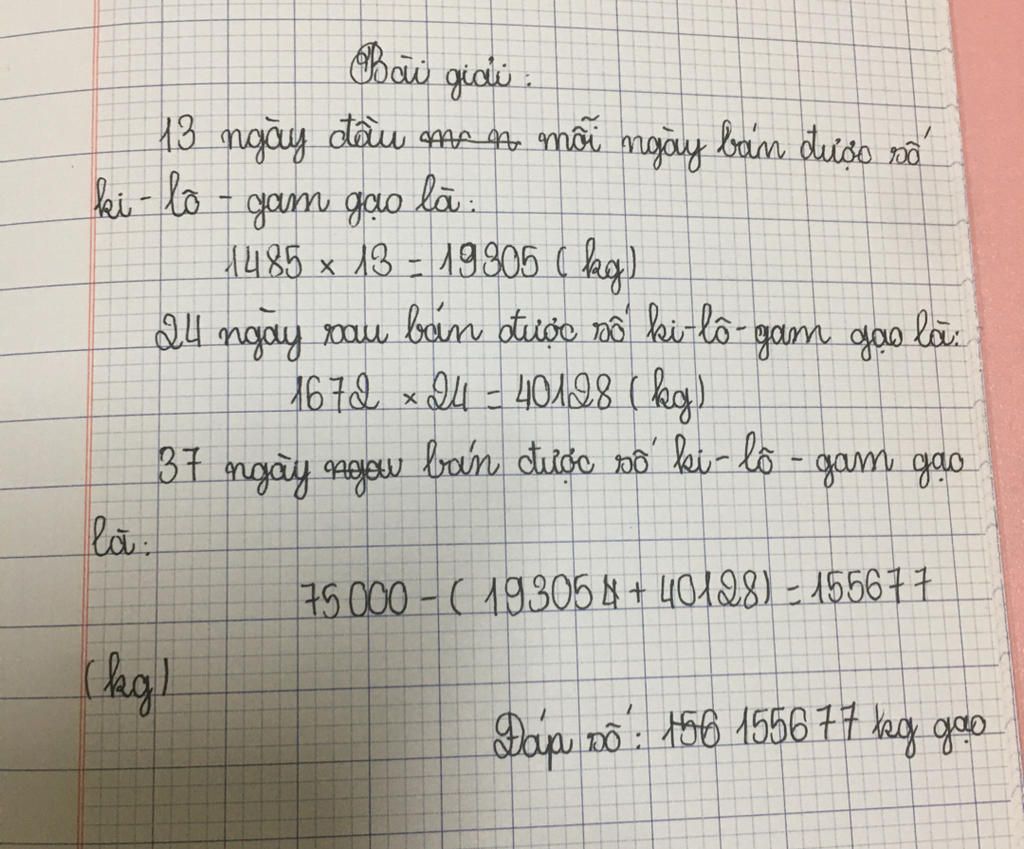 Bài giải:
13 ngày đầu mỗi ngày bán được số
ki-lô-gam gạo là:
1485 × 13 = 19305 (kg)
24 ngày sau bán được số ki-lô-gam gạo là:
1672 × 24 = 40128 (kg)
37 ngày bán được số ki-lô-gam gạo
là:
75000 - ( 193054 + 40128) = 155677
(kg)
Đáp số: 156 155677 kg gạo